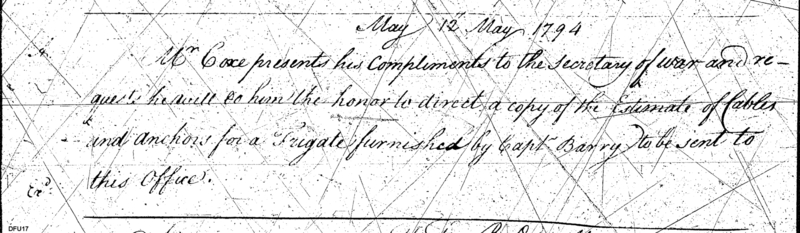 May 12th May 1794
Mr Coxe presents his compliments to the Secretary of war and re-
quests he will do him the honor to direct a copy of the Estimate of Cables
and anchors for a Frigate furnished by Capt. Barry to be sent to
this Office.
DFU17